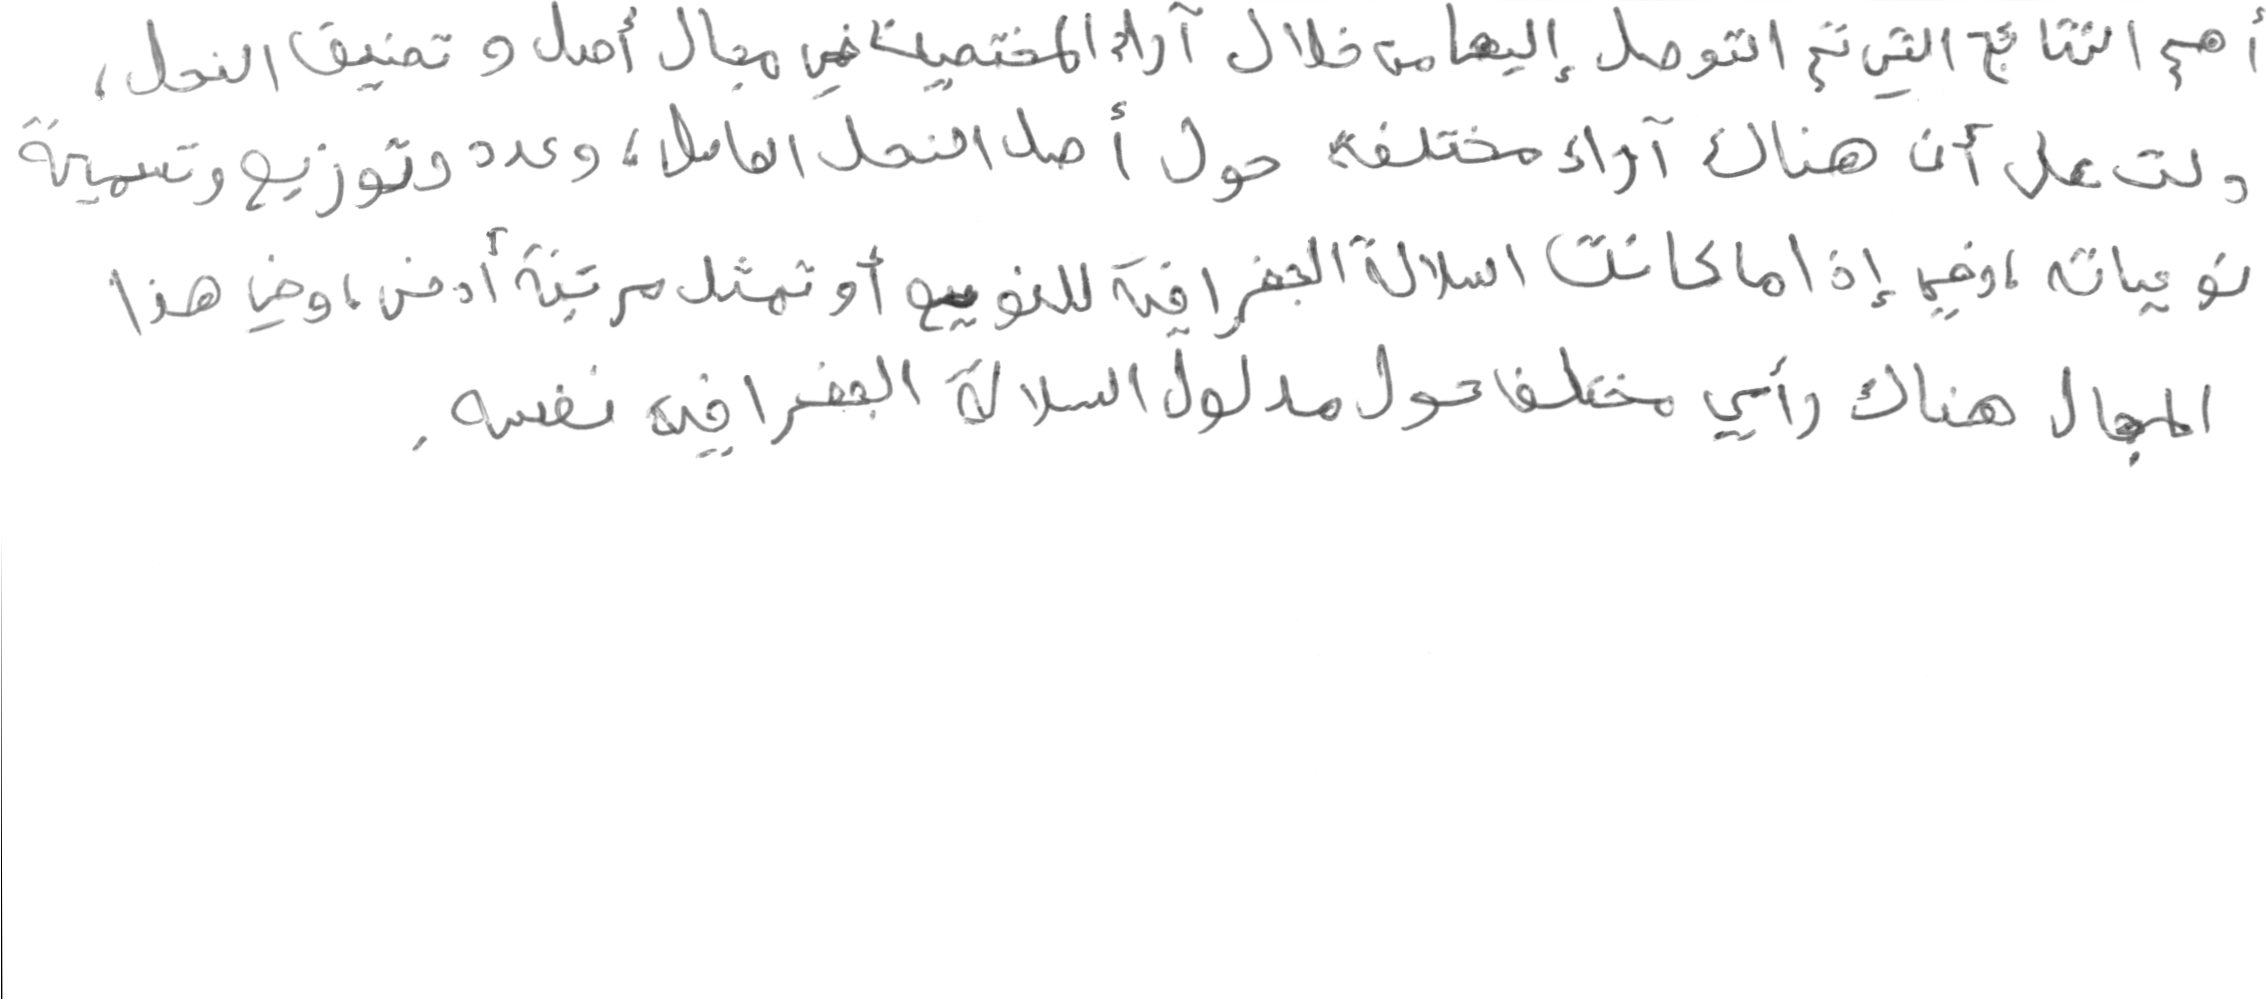 أهم النتائج التي تم التوصل إليها من خلال آراء المختصين في مجال أصل و تصنيف النحل،
دلت على أن هناك آراء مختلفة حول أصل النحل العاسل، وعدد وتوزيع وتسمية
نويعاته، وفي إذا ما كانت السلالة الجغرافية للنويع أو تمثل مرتبة أدنى، وفي هذا
المجال هناك رأي مختلفا حول مدلول السلالة الجغرافية نفسه.